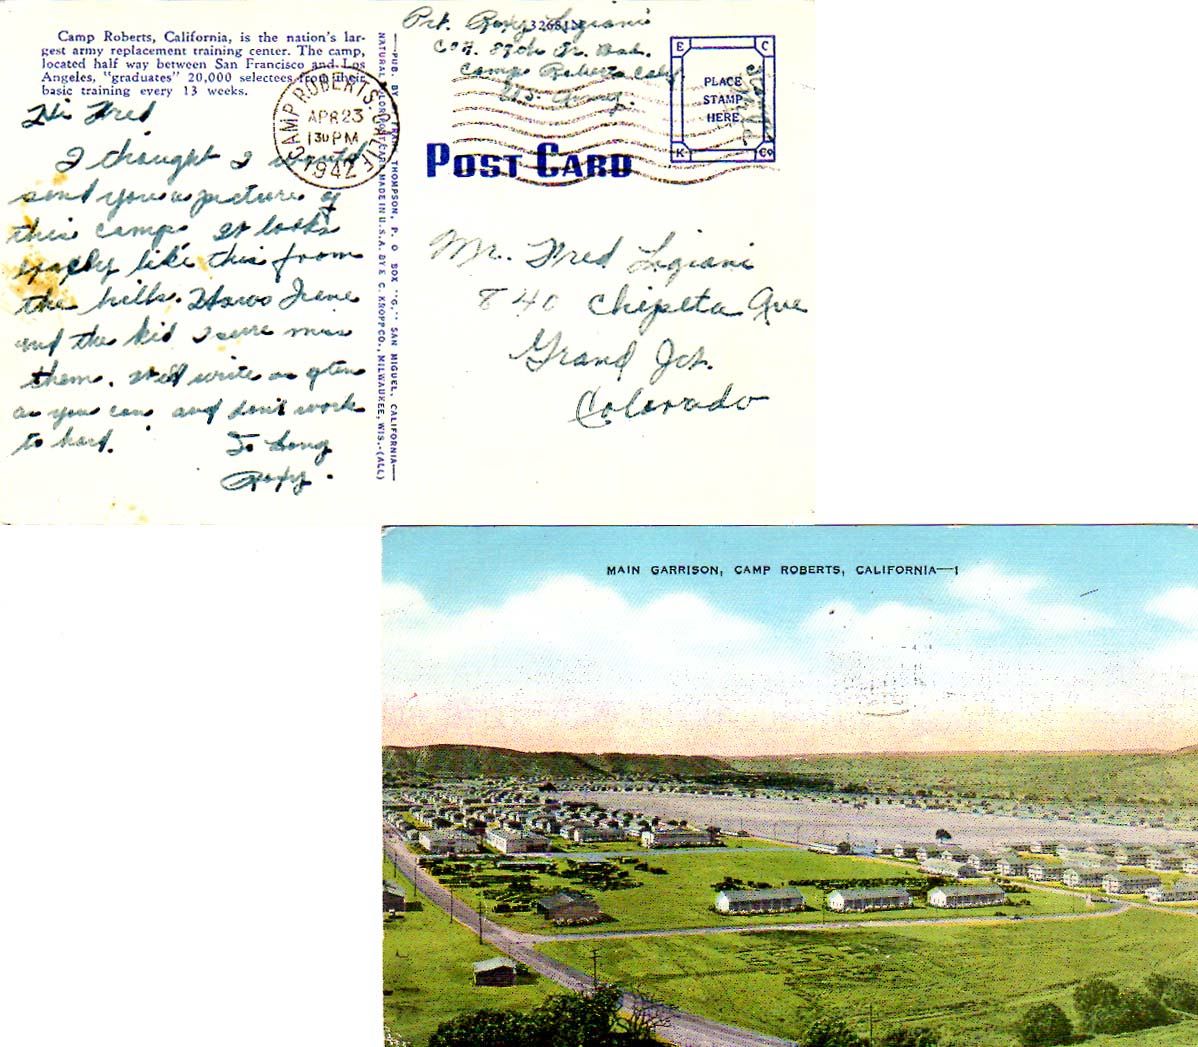 Camp Roberts, California, is the nation's lar-
gest army replacement training center. The camp,
located half way between San Francisco and Los
Angeles, "graduates" 20,000 selectees from their
basic training every 13 weeks.
Hi Fred
I thought I would
send you a picture of
this camp. It looks
exactly like this from
the hills. Hows Irene
and the kid I sure miss
them. Well write as often
as you can and don't work
to hard.
So Long
Roxy.
CAMP ROBERTS. CALIF.
APR 23
1 30 PM
1942
—PUB. BY THOMPSON, P. O BOX "G," SAN MIGUEL, CALIFORNIA—
NATURAL COLOR POST CARD MADE IN U.S.A. BY E. C. KROPP CO., MILWAUKEE, WIS.-(ALL)
Pvt. Roxy Ligiani
Co A. 87th Tr. Bat.
Camp Roberts Calif
U.S. Army.
E C
PLACE
STAMP
HERE
K Co
POST CARD
Mr. Fred Ligiani
840 Chipeta Ave
Grand Jct.
Colorado
MAIN GARRISON, CAMP ROBERTS, CALIFORNIA—1